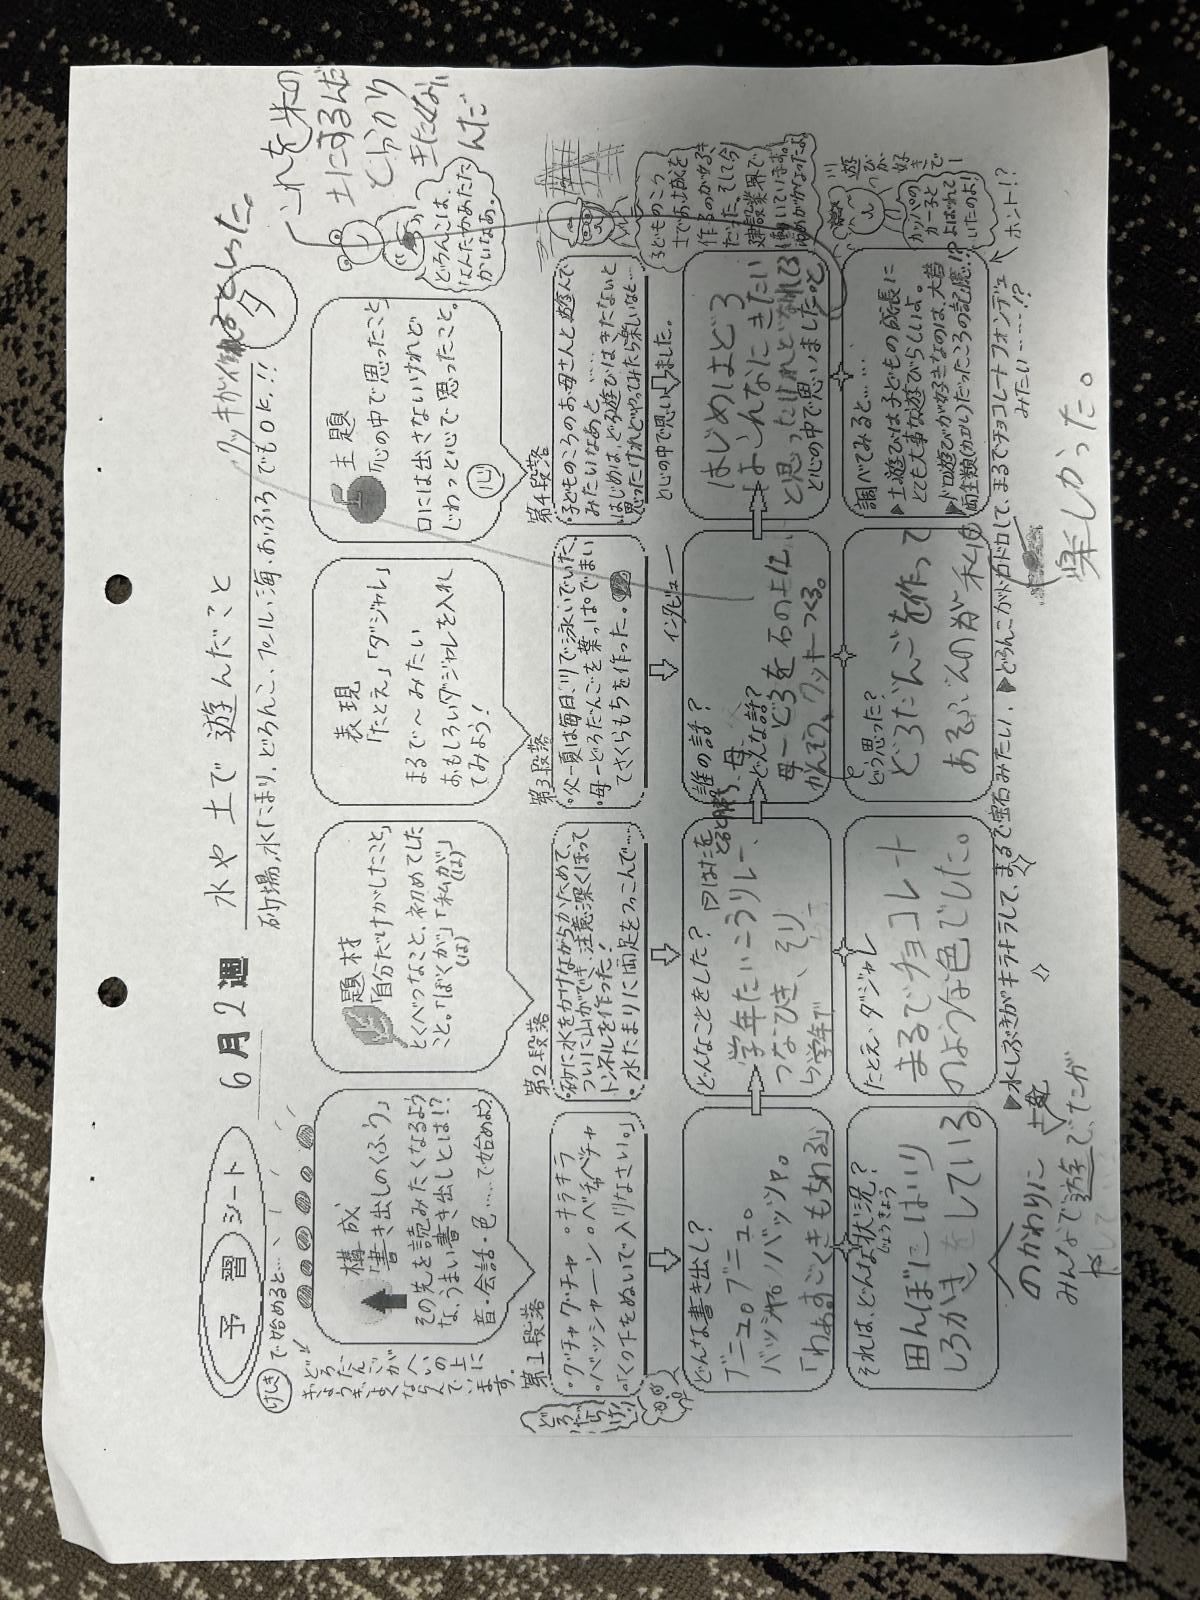 予習シート
6月2週 水や土で遊んだこと
砂場、水たまり、どろんこ、プール、海、おふろでもOK!!
けしきで始めると…
おどろだんごが
ぎょうぎよく
へいの上に
ならんでいます。
構成
「書き出しのくふう」
その先を読みたくなるよう
な、うまい書き出しとは!?
音・会話・色……で始めよう
題材
「自分だけがしたこと」
とくべつなこと、初めてした
こと。「ぼくが」「私が」
(は) (は)
表現
「たとえ」「ダジャレ」
まるで〜みたい
おもしろいダジャレを入れ
てみよう!
主題
「心の中で思ったこと」
口には出さないけれど
じわっと心で思ったこと。
心
どろんこは、
なんだかあたた
かいなあ。
これを米の
土にするんだ
と分かり
んだ
といった。
夕
第1段落
・グチャグチャ ・キラキラ
・バッシャーン ・ベチャベチャ
・「くつ下をぬいで入りなさい。」
第2段落
・砂に水をかけながらかためて、
ついに山ができ、注意深くほって
トンネルを作った!
・水たまりに両足をつっこんで…
第3段落
・父ー夏は毎日、川で泳いでいた。
・母ーどろだんごを葉っぱでまい
てさくらもちを作った。
第4段落
・子どものころのお母さんと遊んで
みたいなあと……
・はじめは、どろ遊びはきたないと
思ったけれどやってみたら楽しいなと…
と心の中で思いました。
インタビュー
子どものころ
土でお城を
作るのが好き
だった。そして今
建設業界で
働いています。
ゆめがかなったよ
どんな書き出し?
ブニュ。ブニュ。
バッシャ。バッシャ。
「わぁすごくきもちわるい」
どんなことをした?
学年たいこうリレー、
つなひき、そり
ら学年で
誰の話?
母
どんな話?
母ーどろを石の上に
かんそう、クッキーつくる。
はじめはどろ
はこんなにきたい
と思ったけれどなれてる
と心の中で思いました。と
それは、どんな状況?
じょうきょう
田んぼにはいり
しろかきをしている
たとえ・ダジャレ
まるでチョコレート
のような色でした。
どう思った?
どろだんごを作って
あるぶんのが私も
調べてみると……
▶土遊びは子どもの成長に
とても大事な遊びらしいよ。
▶ドロ遊びが好きなのは、大昔
▶両生類(カエル)だったころの記憶!?
カッパの
カー子と
よばれて
いたのよ!
遊びが好きでー
ホント!?
▶水しぶきがキラキラして、まるで宝石みたい。
▶どろんこがドロドロして、まるでチョコレートフォンデュ
みたい……!?
のかわりに
みんなで遊んでたが
楽しかった。